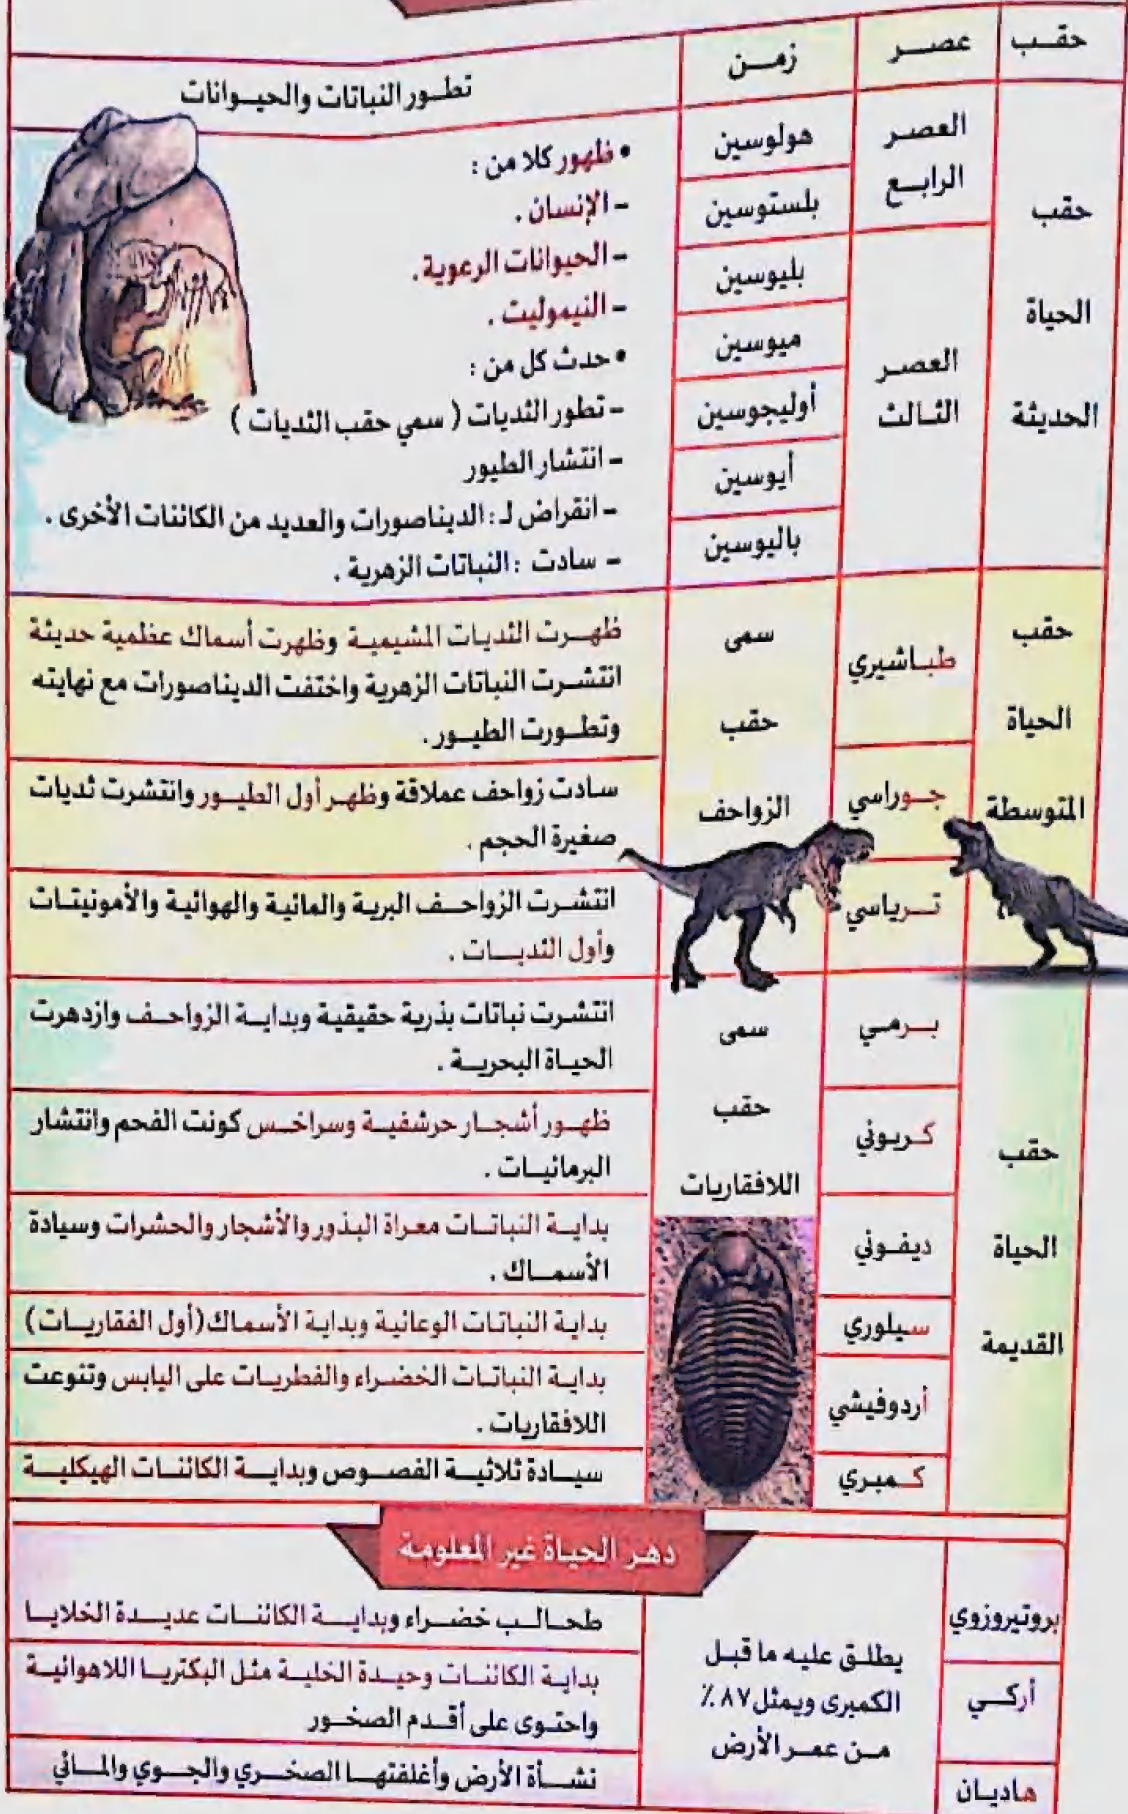 حقب
عصر
زمن
تطور النباتات والحيوانات
حقب
الحياة
الحديثة
العصر
الرابع
هولوسين
بلستوسين
العصر
الثالث
بليوسين
ميوسين
أوليجوسين
أيوسين
باليوسين
• ظهور كلا من :
- الإنسان .
- الحيوانات الرعوية .
- النيموليت .
• حدث كل من :
- تطور الثديات ( سمي حقب الثديات )
- انتشار الطيور
- انقراض لـ : الديناصورات والعديد من الكائنات الأخرى .
- سادت : النباتات الزهرية .
حقب
الحياة
المتوسطة
سمى
حقب
الزواحف
طباشيري
ظهرت الثديات المشيمية وظهرت أسماك عظمية حديثة
انتشرت النباتات الزهرية واختفت الديناصورات مع نهايته
وتطورت الطيور .
جوراسي
سادت زواحف عملاقة وظهر أول الطيور وانتشرت ثديات
صغيرة الحجم .
ترياسي
انتشرت الزواحف البرية والمائية والهوائية والأمونيتات
وأول الثديات .
حقب
الحياة
القديمة
سمى
حقب
اللافقاريات
برمي
انتشرت نباتات بذرية حقيقية وبداية الزواحف وازدهرت
الحياة البحرية .
كربوني
ظهور أشجار حرشفية وسراخس كونت الفحم وانتشار
البرمائيات .
ديفوني
بداية النباتات معراة البذور والأشجار والحشرات وسيادة
الأسماك .
سيلوري
بداية النباتات الوعائية وبداية الأسماك (أول الفقاريات)
أردوفيشي
بداية النباتات الخضراء والفطريات على اليابس وتنوعت
اللافقاريات .
كمبري
سيادة ثلاثية الفصوص وبداية الكائنات الهيكلية
دهر الحياة غير المعلومة
بروتيروزوي
أركي
هاديان
يطلق عليه ما قبل
الكمبرى ويمثل ٨٧ ٪
من عمر الأرض
طحالب خضراء وبداية الكائنات عديدة الخلايا
بداية الكائنات وحيدة الخلية مثل البكتريا اللاهوائية
واحتوى على أقدم الصخور
نشأة الأرض وأغلفتها الصخري والجوي والمائي